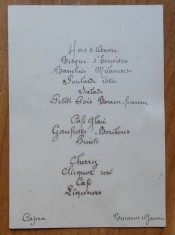 Hors d'œuvre
Bisque d'Ecrevisses
Bouchées Milanaises
Poularde rôtie
Salade
Petits Pois Bonne-femme
Café Glacé
Gaufrettes - Bonbons
Fruits
Cherry
Clicquot rosé
Café
Liqueurs
Capsa